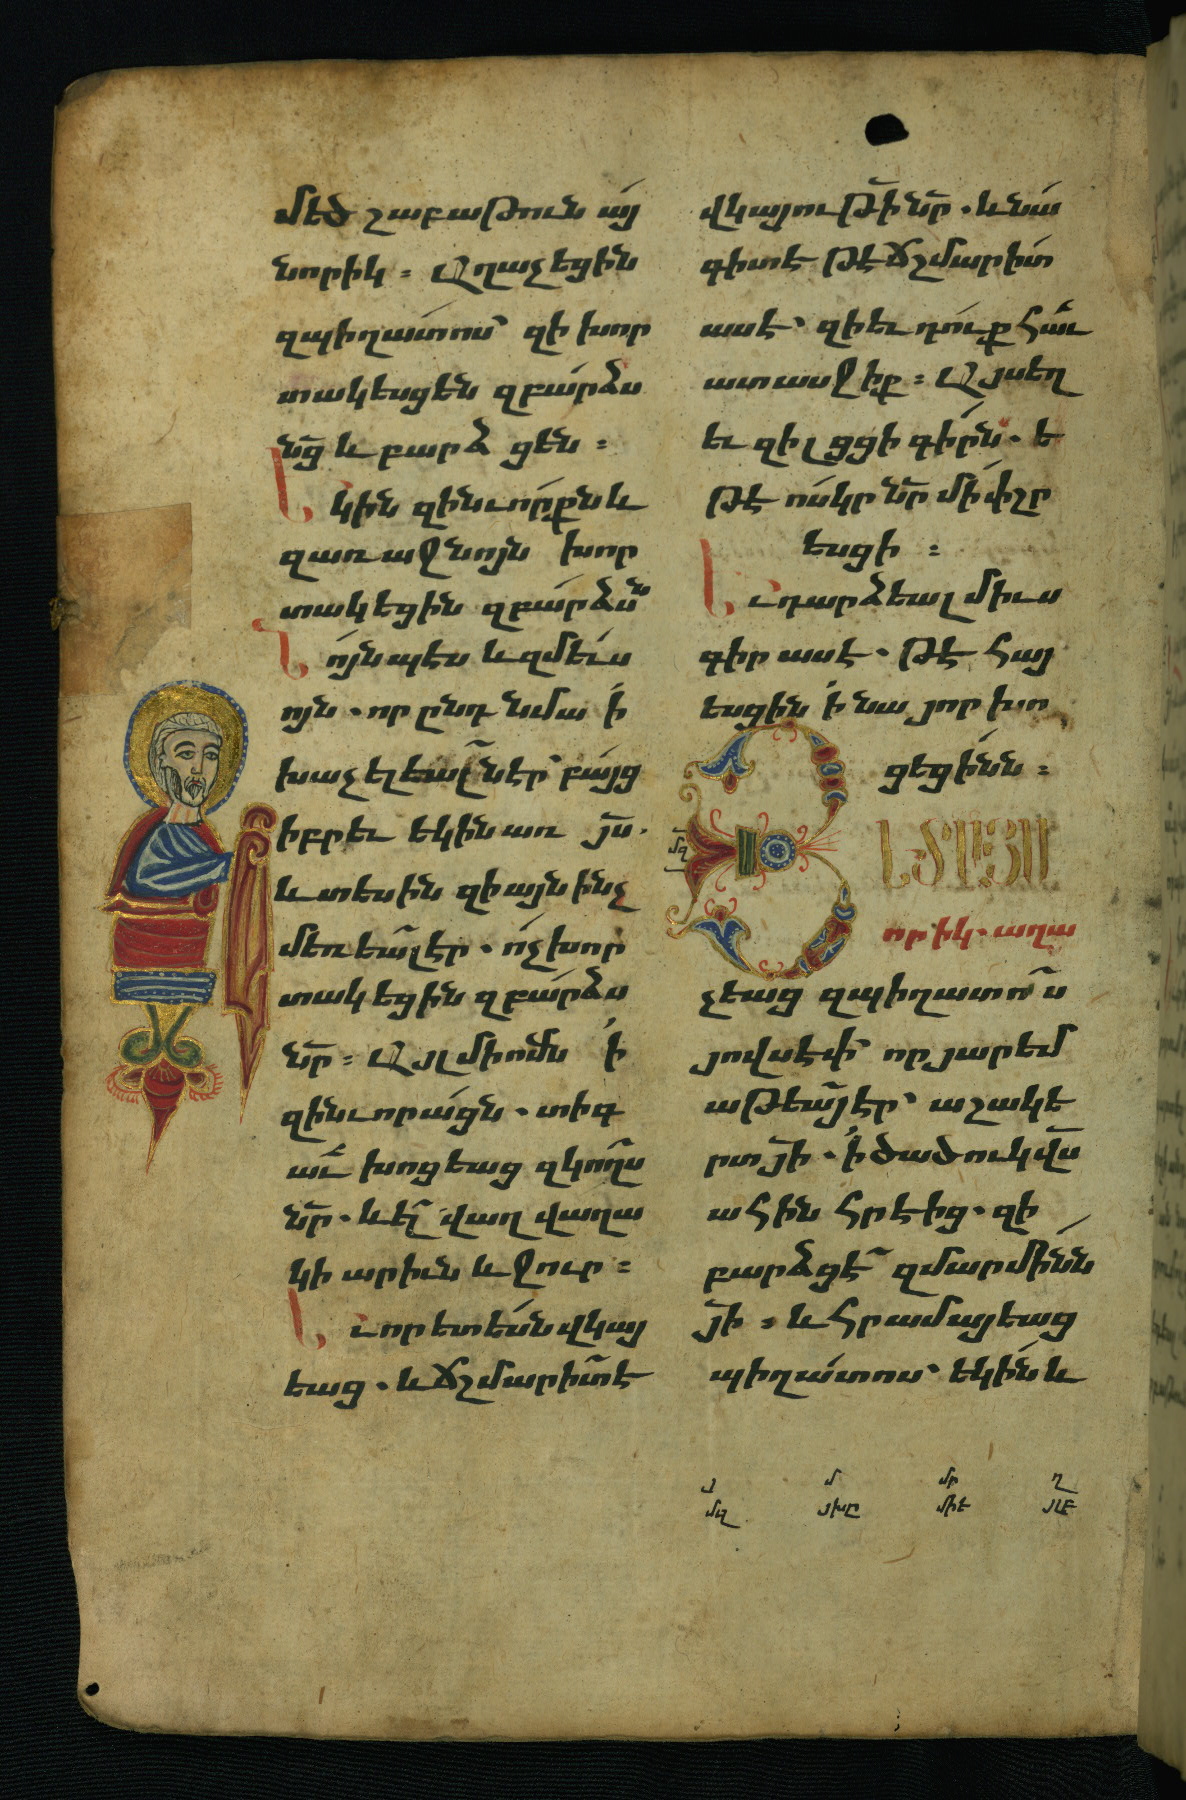 մեծ շաբաթուն այ
նորիկ ։ Աղաչեցին
զպիղատոս՝ զի խոր
տակեսցեն զբարձս
նց և բարձցեն ։
Եկին զինւորքն և
զառաջնոյն խոր
տակեցին զբարձսն
Նոյնպէս և զմեւս
ոյն . որ ընդ նմա ի
խաչելեալ նէր՝ բայց
իբրեւ եկին առ յս .
և տեսին զի այն ինչ
մեռեալ էր . ոչ խոր
տակեցին զբարձս
նր ։ Այլ մի ոմն ի
զինւորացն . տիգ
աւ խոցեաց զկողս
նր . և ել վաղվաղա
կի արիւն և ջուր ։
Եւ որ ետեսն վկայ
եաց . և ճշմարիտ է
վկայութի նր . և նա
գիտէ թէ ճշմարիտ
ասէ՝ զի եւ դուք հաւ
ատասջիք ։ Այս եղ
եւ զի լցցի գիրն . ե
թէ ոսկր նր մի փշր
եսցի ։
Եւ դարձեալ միւս
գիր ասէ . թէ հայ
եսցին ի նա յոր խո
ցեցինն ։
մզ
Ե ՏՅԱՅՍ
որիկ . աղա
չեաց զպիղատոս
յովսեփ՝ որ յարեմ
աթեայ էր՝ աշակե
րտ յի . ի ծածուկ վս
ահին հրէից . զի
բարձցէ զմարմինն
յի ։ և հրամայեաց
պիղատոս՝ եկին և
յ մ մր ղ
մզ յխը միէ յլէ